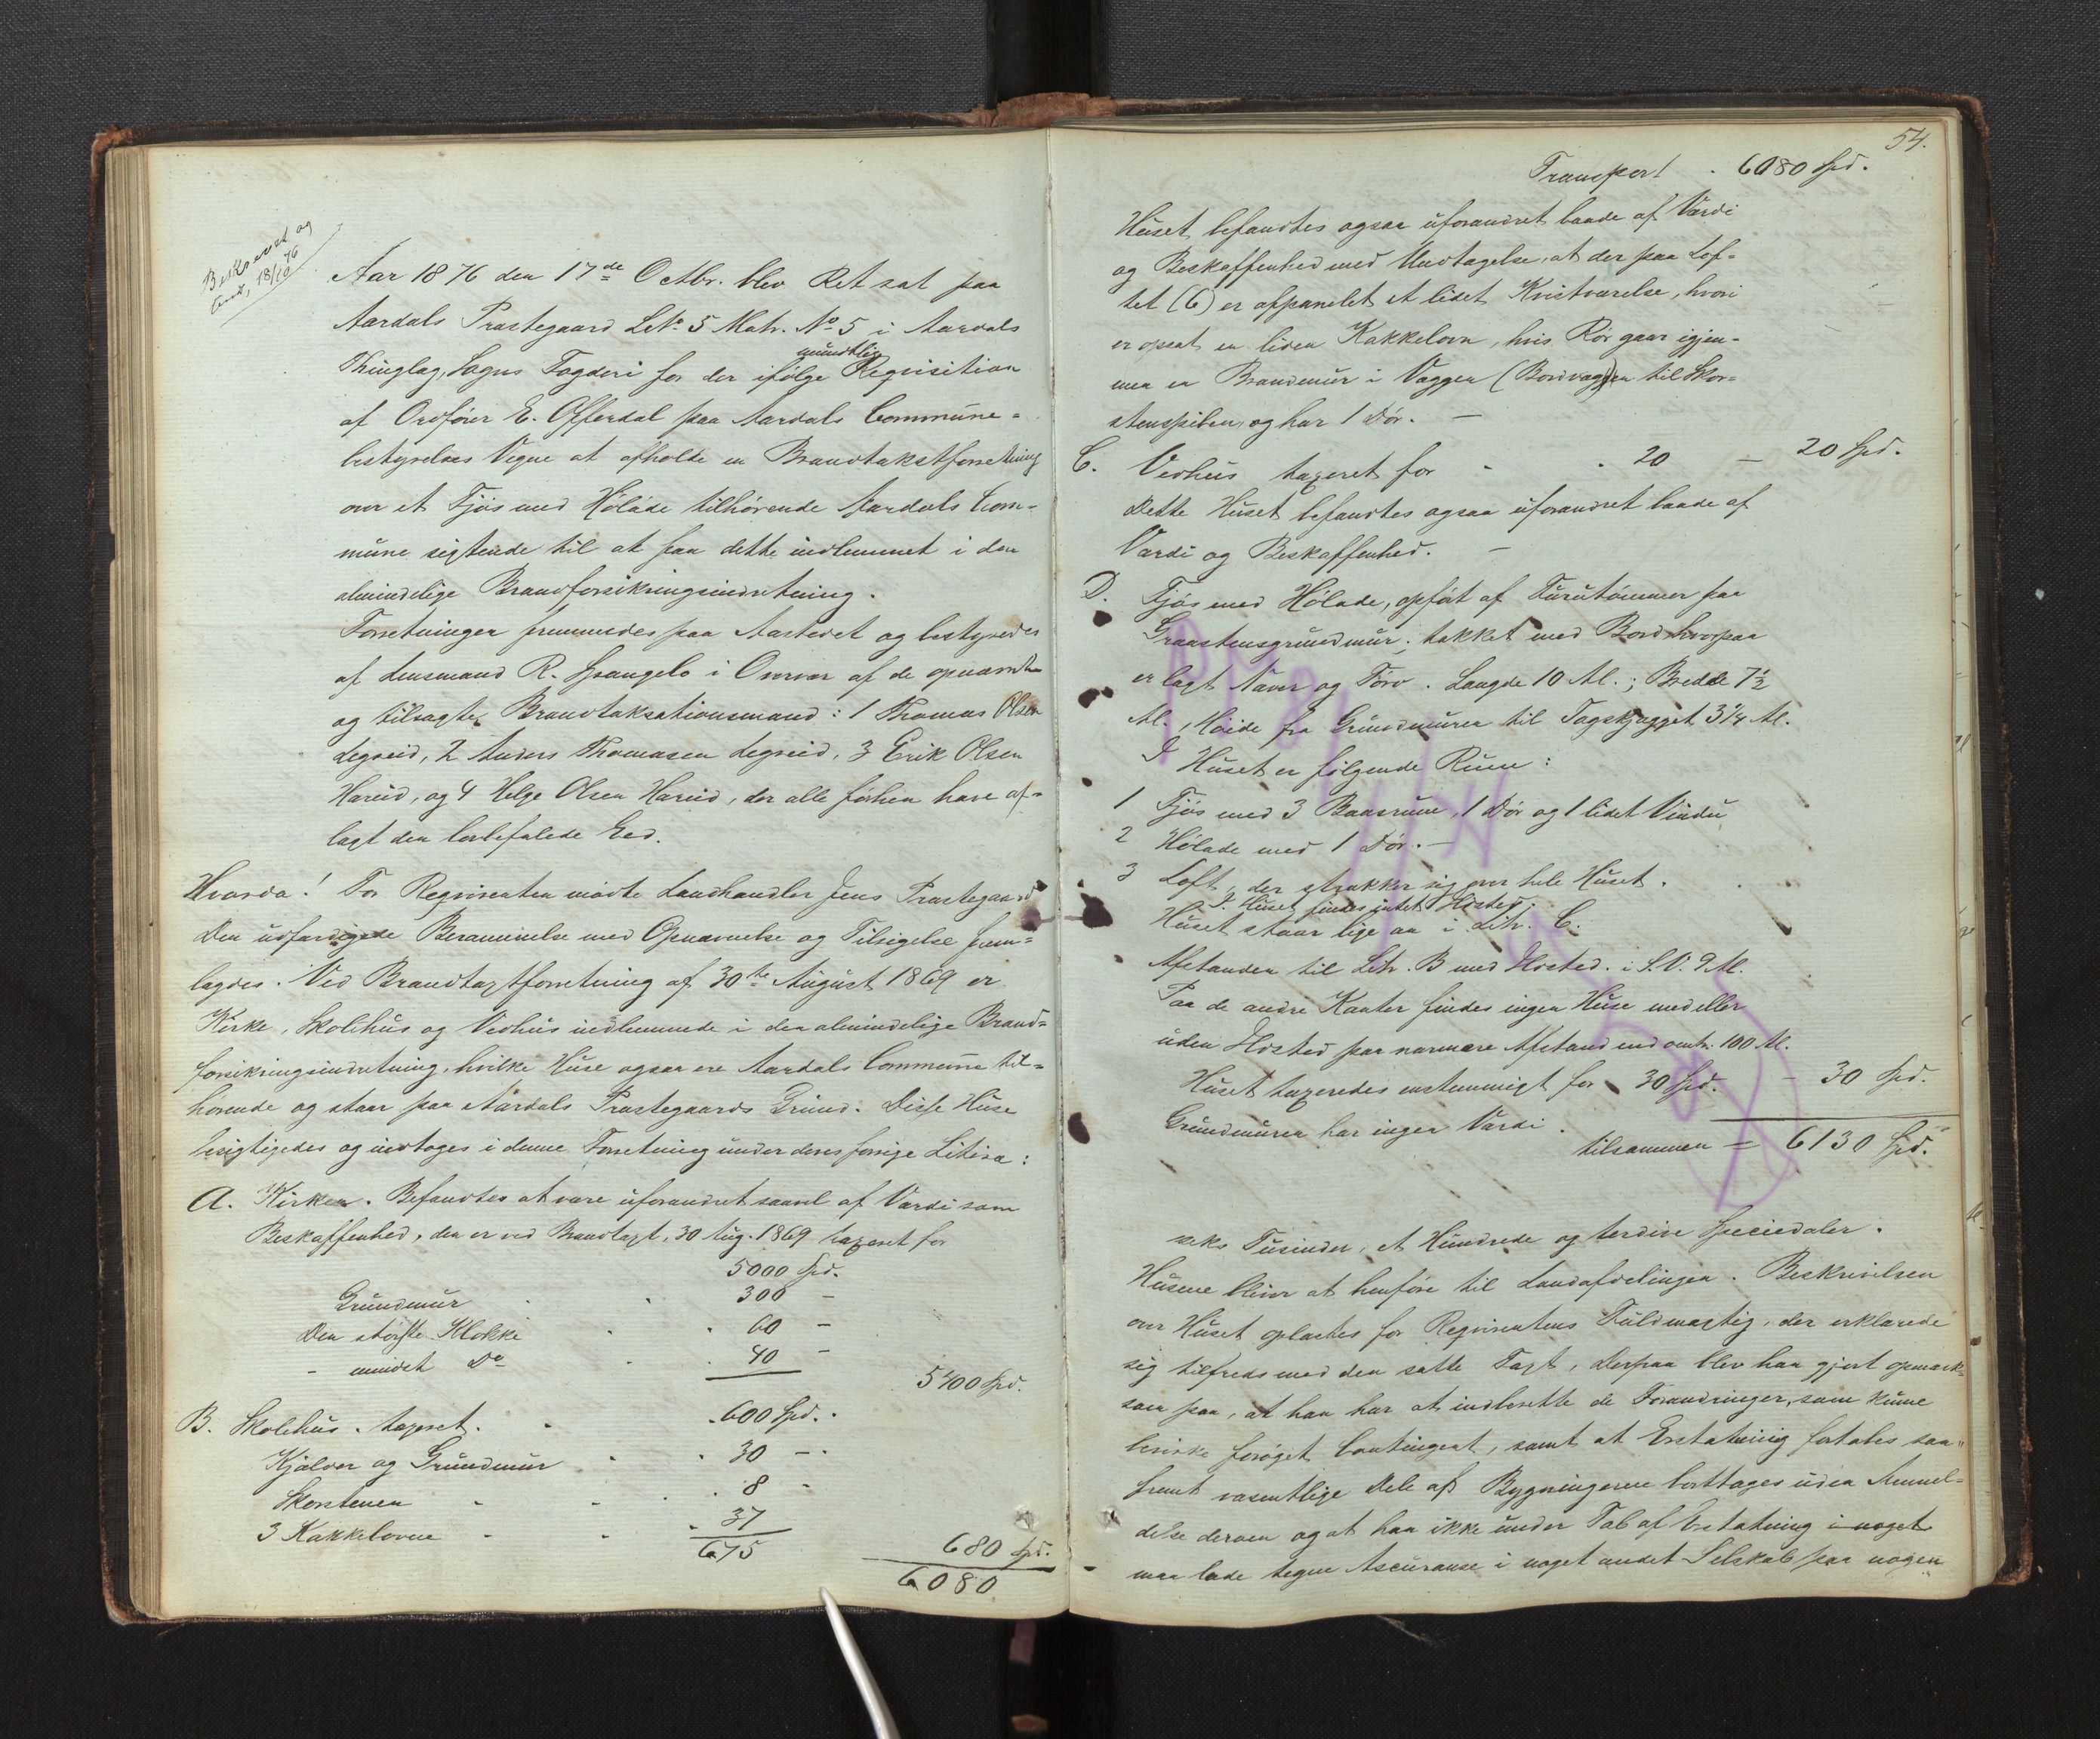 Beskrevet og
18/10 76
Aar 1876 den 17de Octbr. blev Ret sat paa
Aardals Præstegaard LNo 5 Matr. No 5 i Aardals
Thinglag, Sogns Fogderi for der ifølge mundtlig Reqvisition
af Ordfører E. Offerdal paa Aardals Commune-
bestyrelses Vegne at afholde en Brandtakstforretning
over et Fjøs med Høláde tilhørende Aardals Com-
mune sigtende til at faa dette indlemmet i den
almindelige Brandforsikringsindretning.
Forretningen fremmedes paa Aastedet og bestyredes
af Lensmand R. Hrangelo i Overvær af de opnævnte
og tilsagte Brandtaksationsmænd: 1 Thomas Olsen
Legreid, 2 Anders Thomasen Legreid, 3 Erik Olsen
Hareid, og 4 Helge Olsen Hareid, der alle førhen have af-
lagt den lovbefalede Eed.
Hvorda! For Reqvirenten mødte Landhandler Jens Præstegaard
Den udfærdigede Berammelse med Opnævnelse og Tilsigelse frem-
lagdes. Ved Brandtaxtforretning af 30te August 1869 er
Kirke, Skolehus og Vedhus indlemmede i den almindelige Brand-
forsikringsindretning, hvilke Huse ogsaa ere Aardals Commune til-
hørende og staar paa Aardals Præstegaards Grund. Disse Huse
besigtigedes og indtoges i denne Forretning under deres forrige Litera:
A. Kirken. Befandtes at være uforandret saavel af Værdi som
Beskaffenhed, den er ved Brandtaxt, 30 Aug. 1869 taxeret for
5000 Spd.
Grundmur . . 300 -
Den største Klokke . . 60 -
- mindst Do . . 40 -
5400 Spd.
B. Skolehus. taxeret. . . 600 Spd.
Kjælder og Grundmur . . 30 -
Skorstenen - - . 8 -
3 Kakkelovne - - . 37
675
680 Spd.
6080
54.
Transport . 6080 Spd.
Huset befandtes ogsaa uforandret baade af Værdi
og Beskaffenhed med Undtagelse, at der paa Lof-
tet (6) er afpanelet et lidet Kvistværelse, hvori
er opsat en liden Kakkelovn, hvis Rør gaar igjen-
nem en Brandmur i Væggen (Bordvæggen til Skor-
stenspiben, og har 1 Dør. -
C. Vedhus taxeret for - . 20 - 20 Spd.
Dette Huset befandtes ogsaa uforandret baade af
Værdi og Beskaffenhed. -
D. Fjøs med Hølade, opført af Furutømmer paa
Graastensgrundmur; tækket med Bord hvorpaa
er lagt Næver og Törv. Længde 10 Al.; Bredde 7½
Al., Høide fra Grundmuren til Tagskjægget 3¼ Al.
I Huset er følgende Rum:
1 Fjøs med 3 Baasrum, 1 Dør og 1 lidet Vindu
2 Hølade med 1 Dør. -
3 Loft, der strækker sig over hele Huset.
I Huset findes intet Ildsted.
Huset staar lige an i Litr. C.
Afstanden til Litr. B med Ildsted. i S.V. 9 Al.
Paa de andre Kanter findes ingen Huse med eller
uden Ildsted paa nærmere Afstand end omtr. 100 Al.
Huset taxeredes enstemmigt for 30 Spd. - 30 Spd.
Grundmuren har ingen Værdi.
tilsammen = 6130 Spd.
seks Tusinder, et Hundrede og tredive Speciedaler.
Husene bliver at henføre til Landafdelingen. Beskrivelsen
over Huset oplæstes for Reqvirentens Fuldmægtig, der erklærede
sig tilfreds med den satte Taxt, Derpaa blev han gjort opmærk-
som paa, at han har at indberette de Forandringer, som kunne
bevirke forøget Contingent, samt at Erstatning fortabes saa-
fremt væsentlige Dele af Bygningerne borttages uden Anmel-
delse derom og at han ikke under Tab af Erstatning i noget
maa lade tegne Ascurance i noget andet Selskab paa nogen